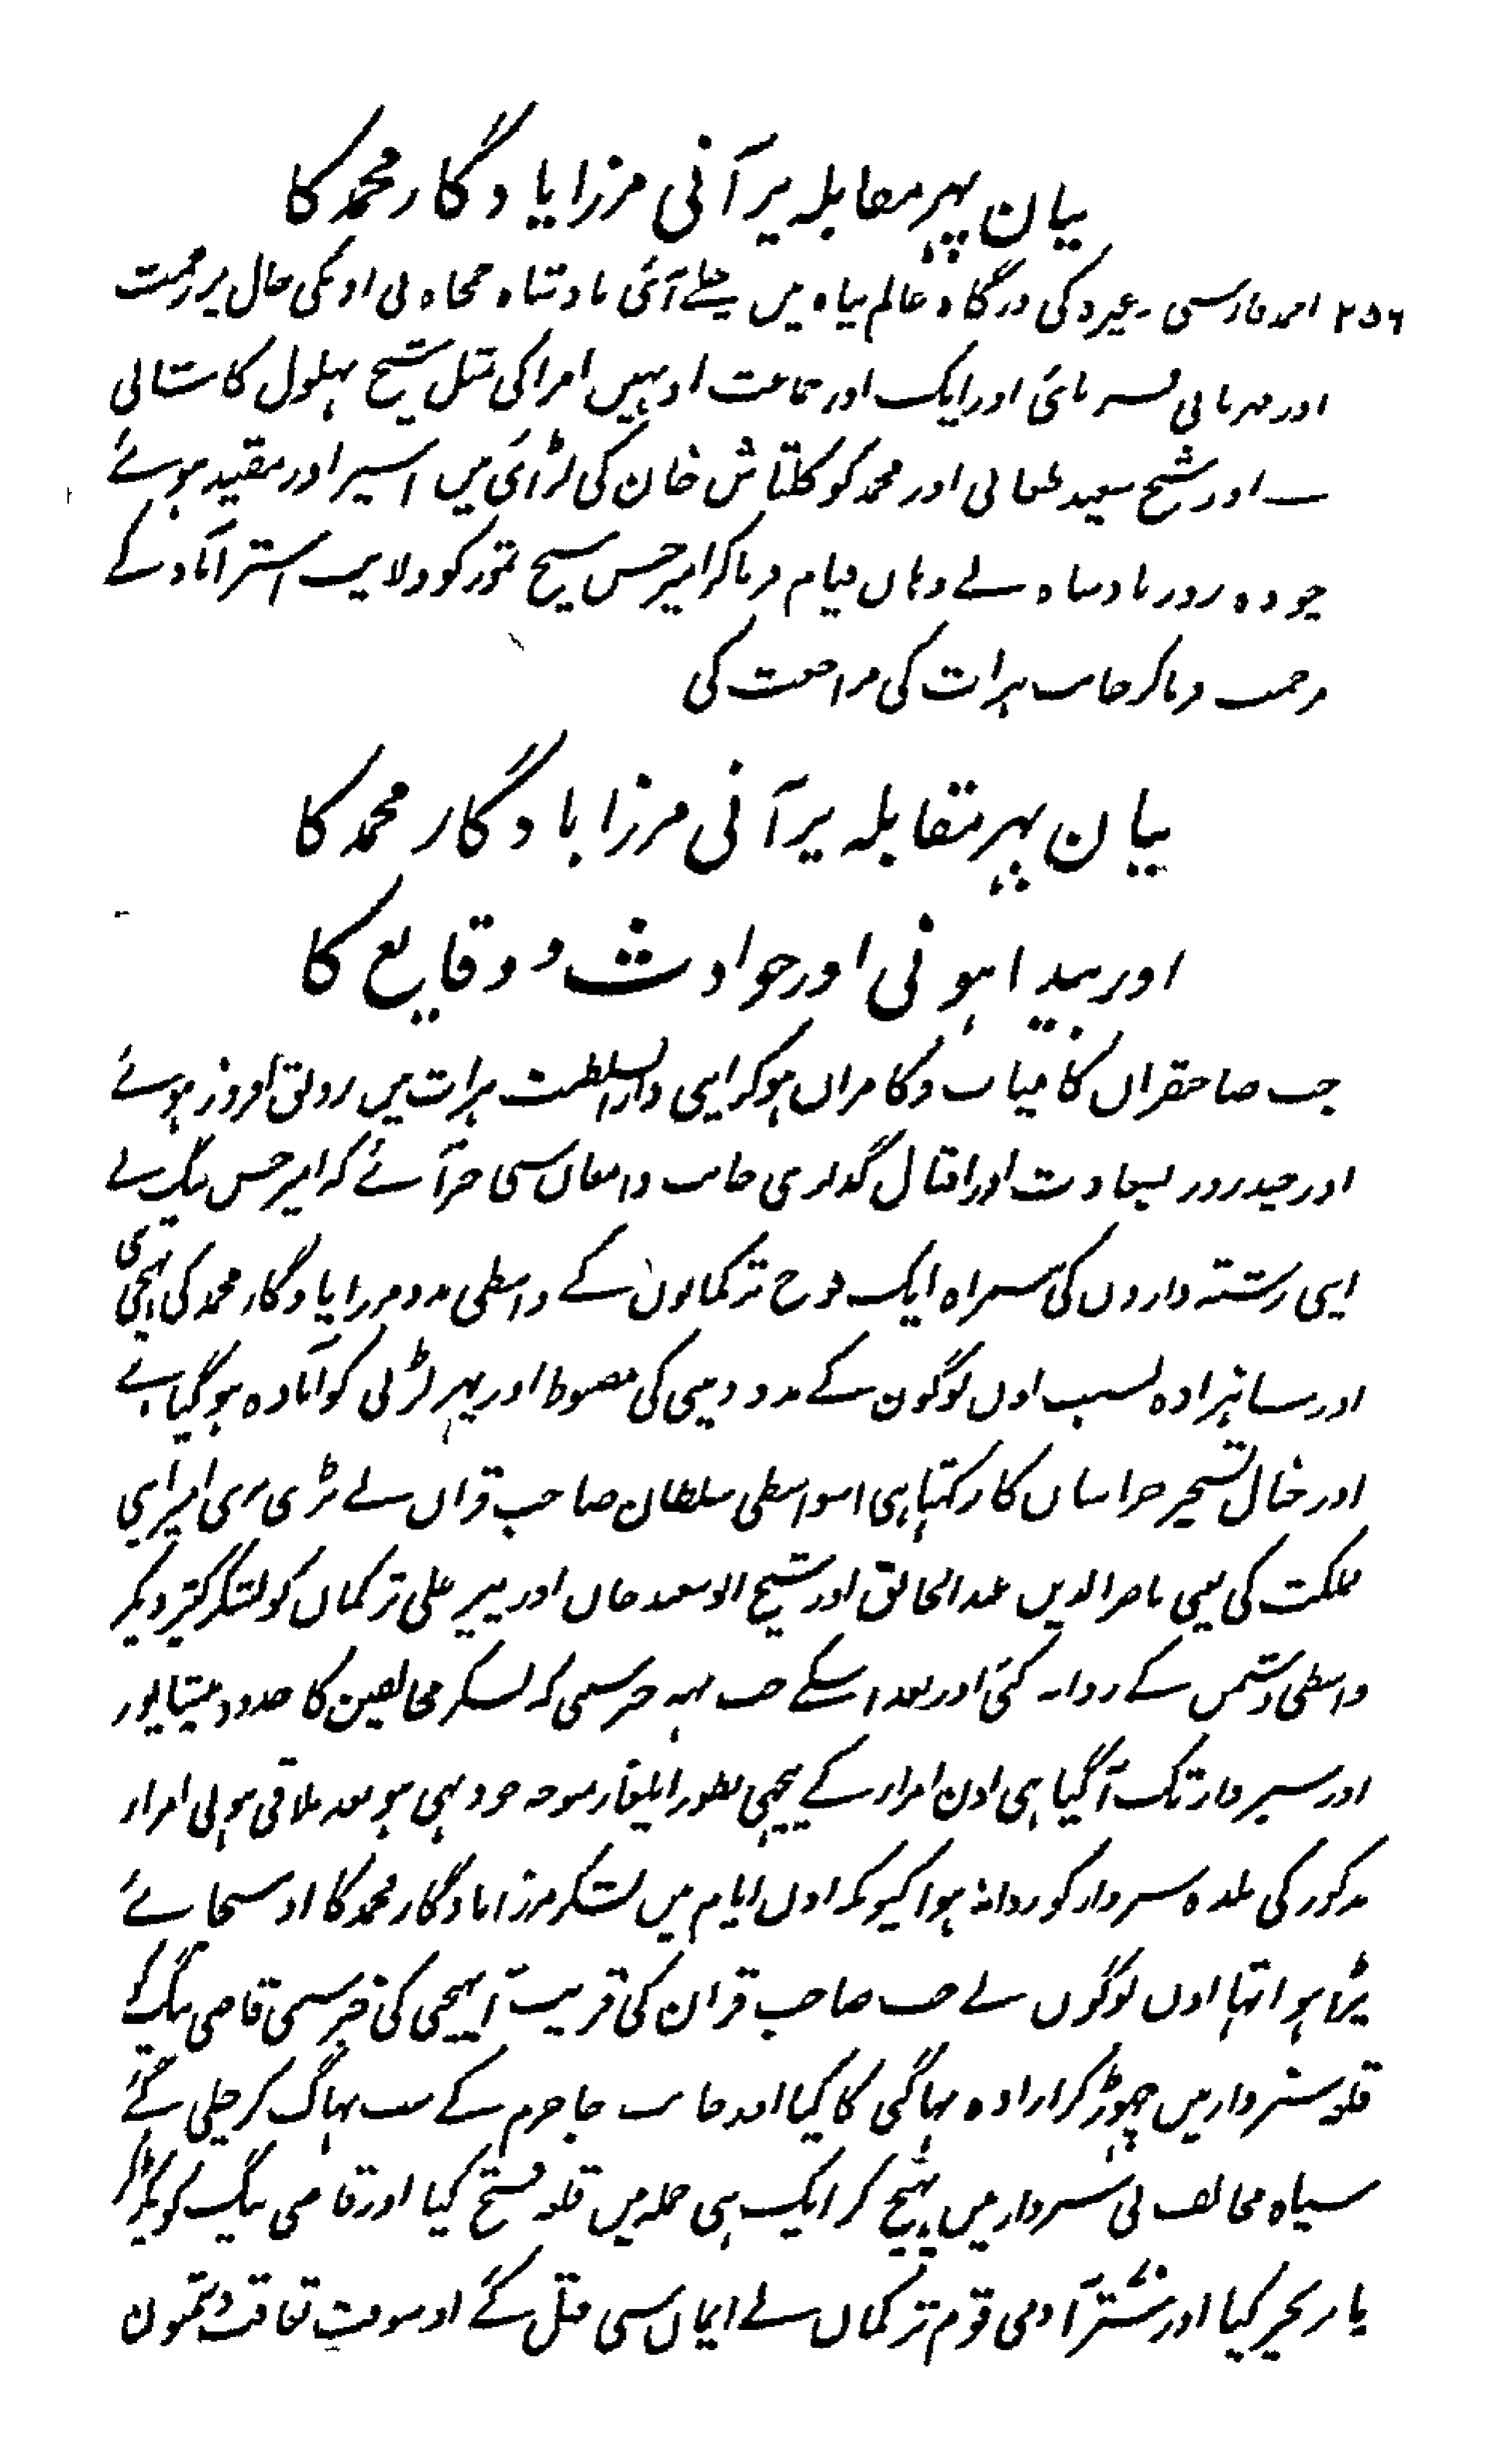 بیان پہر مقابلہ پر آنی مرزا یادگار محمد کا
۲۵۶ احمد فارسی وغیرہ کی درگاہ عالم پناہ میں چلے آئی بادشاہ جمجاہ نی اونکی حال پر رحمت
اور مہربانی فرمائی اور ایک اور جماعت اونہیں امرا کی مثل شیخ بہلول کاشانی
اور شیخ سعید طغائی اور محمد کوکلتاش خان کی لڑائی میں اسیر اور مقید ہوئے
چودہ روز بادشاہ نے وہاں قیام فرماکر امیر حسن شیخ تمور کو ولایت استرآباد کے
مرحمت فرماکر جانب ہرات کی مراجعت کی
بیان پہر مقابلہ پر آنی مرزا یادگار محمد کا
اور پیدا ہونی اور حوادث و وقایع کا
جب صاحبقران کامیاب و کامراں ہوکر اپنی دارالسلطنت ہرات میں رونق افروز ہوئے
اور چند روز بسعادت اور اقبال گذری جانب دامغان سی خبر آئے کہ امیر حسن بیگ نے
اپنی رشتہ داروں کی ہمراہ ایک فوج ترکمانوں کے واسطی مدد مرزا یادگار محمد کی بہیجی ہی
اور شاہزادہ بسبب اون لوگون کے مدد دینی کی مضبوط اور پہر لڑنی کو آمادہ ہوگیا ہے
اور خیال تسخیر خراسان کا رکہتا ہی اسواسطی سلطان صاحب قران نے بڑی بڑی امیر اپنی
مملکت کی یعنی ناصرالدین عبدالخالق اور شیخ ابوسعید خان اور پیر علی ترکمان کو لشکر کثیر دیکر
واسطی دشمن کے روانہ کئی اور بعد اسکے جب یہہ خبر سنی کہ لشکر مخالفین کا حدود نیشاپور
اور سبزوار تک آگیا ہی اون امراء کے پیچہی بطور ایلغار متوجہ خود بہی ہو بعد ملاقی ہونی امراء
مذکور کی بلدہ سبزوار کو روانہ ہوا کیونکہ اون ایام میں لشکر مرزا یادگار محمد کا اوسجائے
پڑا ہوا تہا اون لوگوں نے جب صاحب قران کی قریب آ پہنچی کی خبر سنی قاضی بیگ کو
قلعہ سبزوار میں چہوڑکر ارادہ بہاگنی کا کیا اور جانب جاجرم کے سب بہاگ کر چلی گئے
سپاہ مخالف نی سبزوار میں پہنچ کر ایک ہی حملہ میں قلعہ فتح کیا اور قاضی بیگ کو پکڑ کر
پا بزنجیر کیا اور ستر آدمی قوم ترکمان بے ایمان سی قتل کئے اوسوقت تعاقب دشمنون